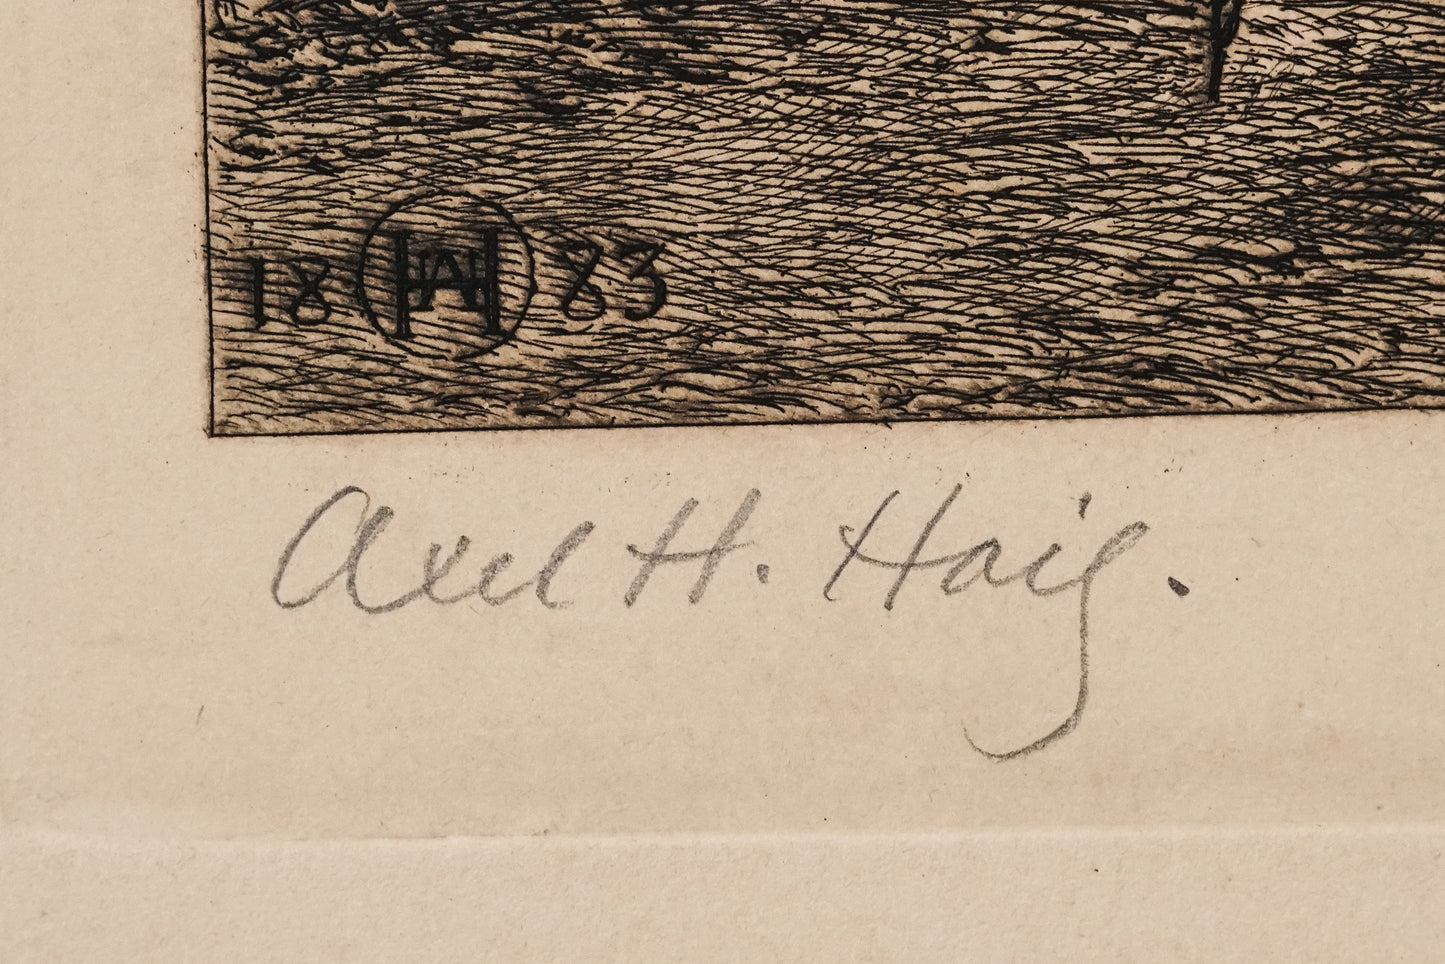 18 HAH 83
Axel H. Haig.